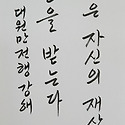 은 자신의 재산
을 받는다
대원만전행강해